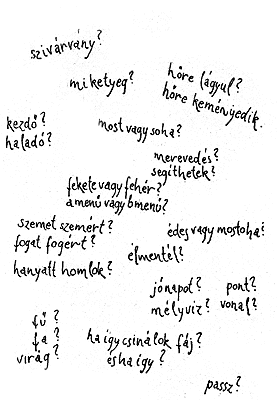 szivárvány?
mi ketyeg?
hőre lágyul?
hőre keményedik.
kezdő?
haladó?
most vagy soha?
merevedés?
segíthetek?
fekete vagy fehér?
a menü vagy b menü?
szemet szemért?
fogat fogért?
édes vagy mostoha?
élmentél?
hanyatt homlok?
jónapot?
mélyvíz?
pont?
vonal?
fű?
fa?
virág?
ha így csinálok fáj?
és ha így?
passz?